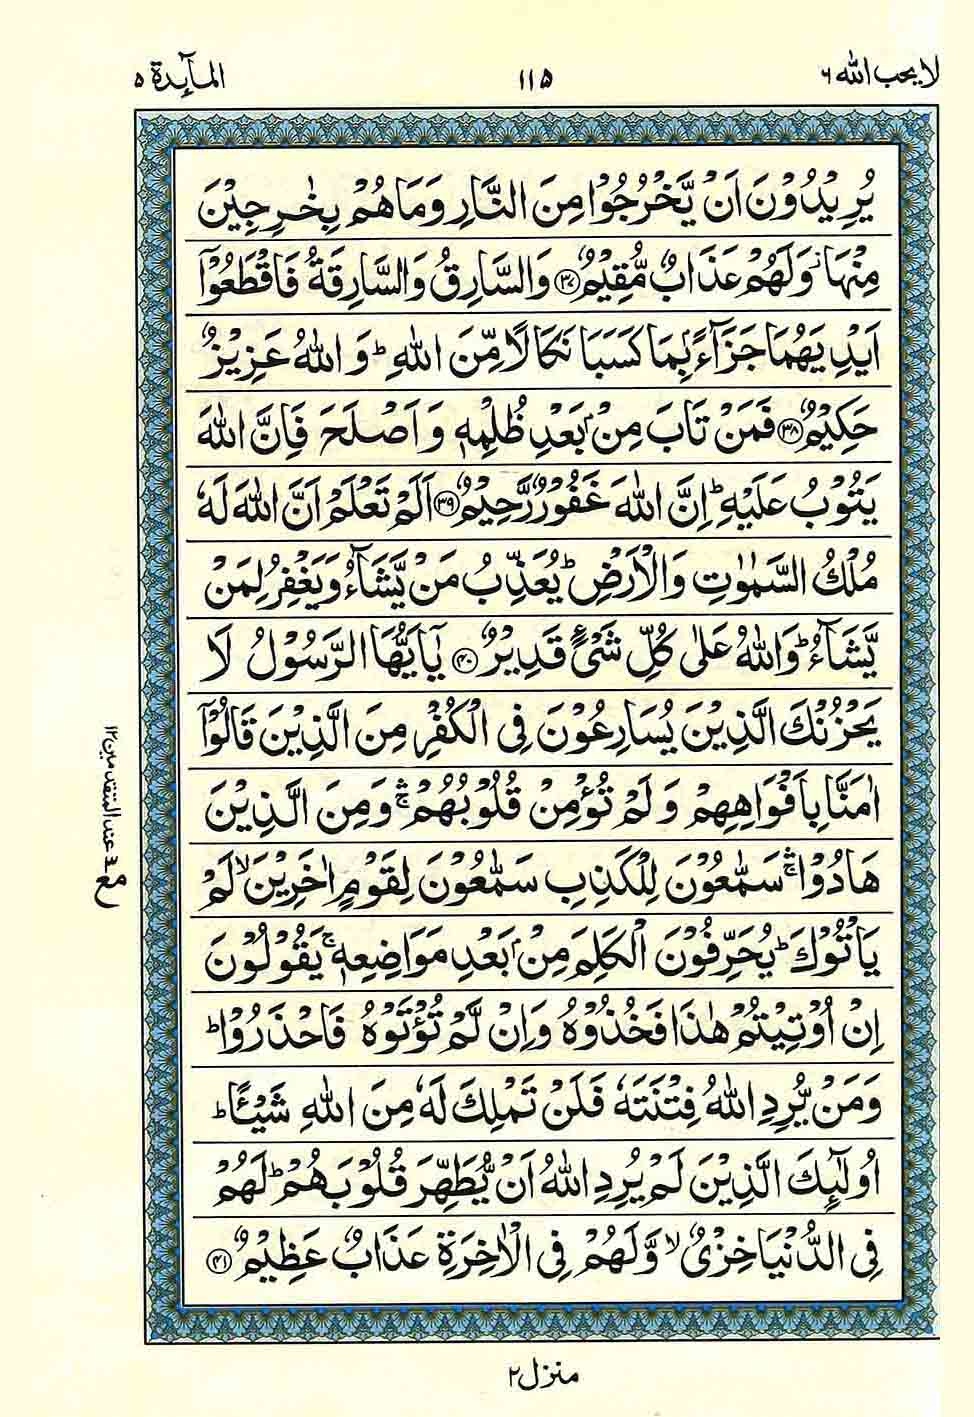 لا یحب الله ٦ ١١٥ المآىِٕدة ٥
یُرِیْدُوْنَ اَنْ یَّخْرُجُوْا مِنَ النَّارِ وَمَا هُمْ بِخٰرِجِیْنَ
مِنْهَا ؗ وَلَهُمْ عَذَابٌ مُّقِیْمٌ ﴿۳۷﴾ وَالسَّارِقُ وَالسَّارِقَةُ فَاقْطَعُوْۤا
اَیْدِیَهُمَا جَزَآءًۢ بِمَا كَسَبَا نَكَالًا مِّنَ اللّٰهِ ؕ وَاللّٰهُ عَزِیْزٌ
حَكِیْمٌ ﴿۳۸﴾ فَمَنْ تَابَ مِنْۢ بَعْدِ ظُلْمِهٖ وَاَصْلَحَ فَاِنَّ اللّٰهَ
یَتُوْبُ عَلَیْهِ ؕ اِنَّ اللّٰهَ غَفُوْرٌ رَّحِیْمٌ ﴿۳۹﴾ اَلَمْ تَعْلَمْ اَنَّ اللّٰهَ لَهٗ
مُلْكُ السَّمٰوٰتِ وَالْاَرْضِ ؕ یُعَذِّبُ مَنْ یَّشَآءُ وَیَغْفِرُ لِمَنْ
یَّشَآءُ ؕ وَاللّٰهُ عَلٰی كُلِّ شَیْءٍ قَدِیْرٌ ﴿۴۰﴾ یٰۤاَیُّهَا الرَّسُوْلُ لَا
یَحْزُنْكَ الَّذِیْنَ یُسَارِعُوْنَ فِی الْكُفْرِ مِنَ الَّذِیْنَ قَالُوْۤا
اٰمَنَّا بِاَفْوَاهِهِمْ وَلَمْ تُؤْمِنْ قُلُوْبُهُمْ ۛۚ وَمِنَ الَّذِیْنَ
هَادُوْا ۛۚ سَمّٰعُوْنَ لِلْكَذِبِ سَمّٰعُوْنَ لِقَوْمٍ اٰخَرِیْنَ ۙ لَمْ
یَاْتُوْكَ ؕ یُحَرِّفُوْنَ الْكَلِمَ مِنْۢ بَعْدِ مَوَاضِعِهٖ ۚ یَقُوْلُوْنَ
اِنْ اُوْتِیْتُمْ هٰذَا فَخُذُوْهُ وَاِنْ لَّمْ تُؤْتَوْهُ فَاحْذَرُوْا ؕ
وَمَنْ یُّرِدِ اللّٰهُ فِتْنَتَهٗ فَلَنْ تَمْلِكَ لَهٗ مِنَ اللّٰهِ شَیْـًٔا ؕ
اُولٰٓىِٕكَ الَّذِیْنَ لَمْ یُرِدِ اللّٰهُ اَنْ یُّطَهِّرَ قُلُوْبَهُمْ ؕ لَهُمْ
فِی الدُّنْیَا خِزْیٌ ۙ وَّلَهُمْ فِی الْاٰخِرَةِ عَذَابٌ عَظِیْمٌ ﴿۴۱﴾
عند المتقدمین ۱۲
منزل ۲